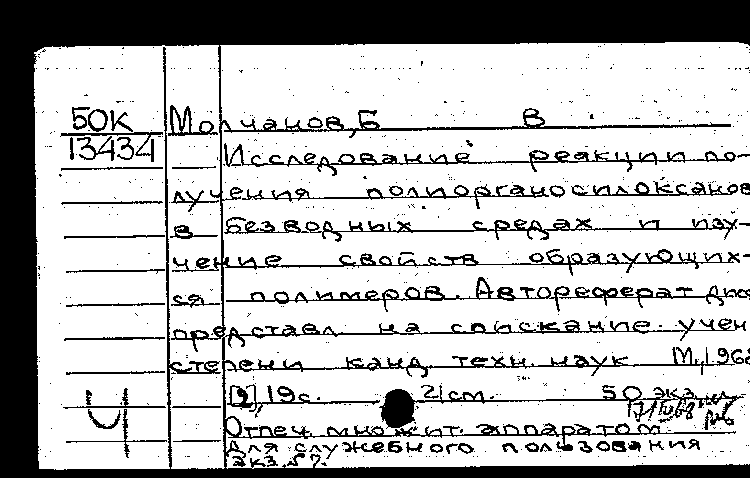 50К Молчанов, Б В.
13434 Исследование реакции по-
лучения полиорганосилоксанов
в безводных средах и изу-
чение свойств образующих-
ся полимеров. Автореферат дис
представл на спискание учен
степени канд. техн. наук М., 1968
[2] 19с. 21см. 50 экз.
Отпеч. множит. аппаратом
Ч Для служебного пользования
экз. № 7.